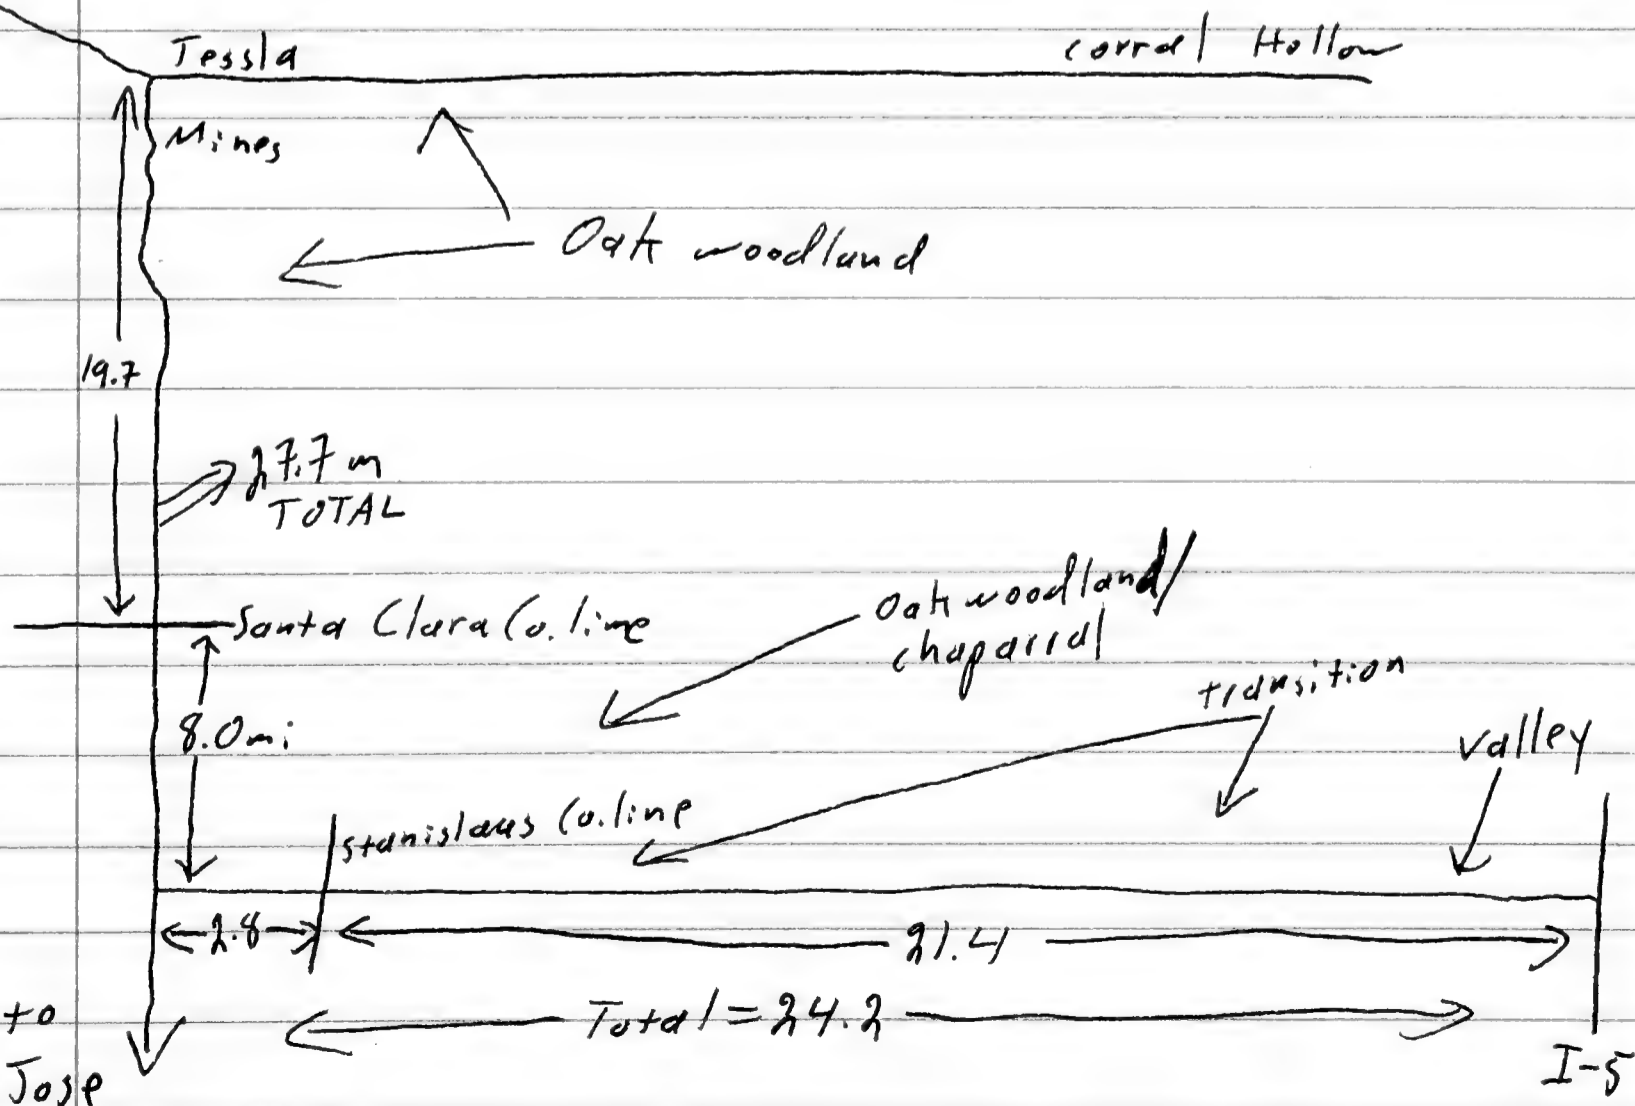 Tessla
corral Hollow
Mines
Oak woodland
19.7
27.7 m
TOTAL
Santa Clara Co. line
Oak woodland/
chaparral
transition
8.0 mi
valley
Stanislaus Co. line
2.8
21.4
to
Total = 24.2
Jose
I-5